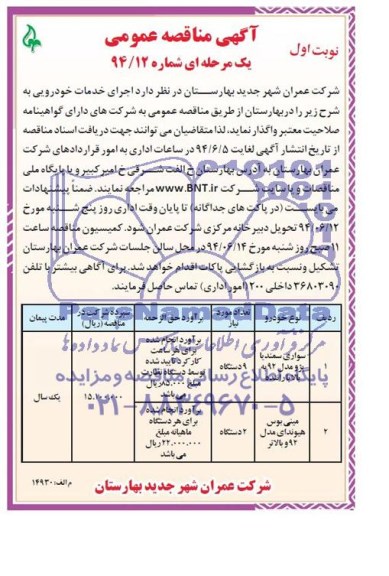 آگهی مناقصه عمومی
نوبت اول
یک مرحله ای شماره ۹۴/۱۲
شرکت عمران شهر جدید بهارستان در نظر دارد اجرای خدمات خودرویی به
شرح زیر را در بهارستان از طریق مناقصه عمومی به شرکت های دارای گواهینامه
صلاحیت معتبر واگذار نماید، لذا متقاضیان می توانند جهت دریافت اسناد مناقصه
از تاریخ انتشار آگهی لغایت ۹۴/۶/۵ در ساعات اداری به امور قراردادهای شرکت
عمران بهارستان به آدرس بهارستان خ الفت شرقی خ امیرکبیر و یا پایگاه ملی
مناقصات و یا سایت شرکت www.BNT.ir مراجعه نمایند. ضمنا پیشنهادات
می بایست (در پاکت های جداگانه) تا پایان وقت اداری روز پنج شنبه مورخ
۹۴/۰۶/۱۲ تحویل دبیرخانه مرکزی شرکت عمران شود. کمیسیون مناقصه ساعت
۱۱ صبح روز شنبه مورخ ۹۴/۰۶/۱۴ در محل سالن جلسات شرکت عمران بهارستان
تشکیل ونسبت به بازگشایی پاکات اقدام خواهد شد. برای آگاهی بیشتر با تلفن
۳۶۸۰۳۰۹۰ داخلی ۲۰۰ (امور اداری) تماس حاصل فرمایند.
ردیف نوع خودرو تعداد مورد نیاز برآورد حق الزحمه سپرده شرکت در مناقصه (ریال) مدت پیمان
۱ سواری سمند یا پژو مدل ۹۲ به ۹ دستگاه برآورد انجام شده برای هر ساعت کارکرد تایید شده توسط دستگاه نظارت مبلغ ۸۵.۰۰۰ ریال می باشد
یک سال
۲ مینی بوس هیوندای مدل ۹۲ و بالاتر ۲ دستگاه برآورد انجام شده برای هر دستگاه ماهیانه مبلغ ۲۲.۰۰۰.۰۰۰ ریال می باشد
پایگاه اطلاع رسانی مناقصه و مزایده
۰۲۱-۸۸۳۴۹۶۷۰-۵
شرکت عمران شهر جدید بهارستان
م الف: ۱۴۹۳۰